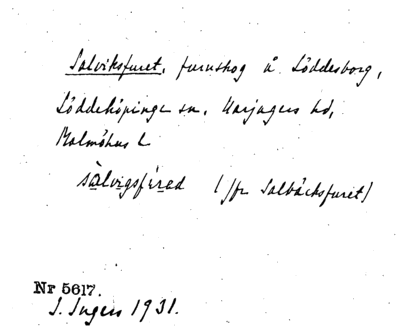 Salviksfuret, furuskog å Löddesborg,
Löddeköpinge sn, Harjagers hd,
Malmöhus L
sàlvigsfúred (jfr Salbäcksfuret)
Nr 5617.
I. Ingers 1931.